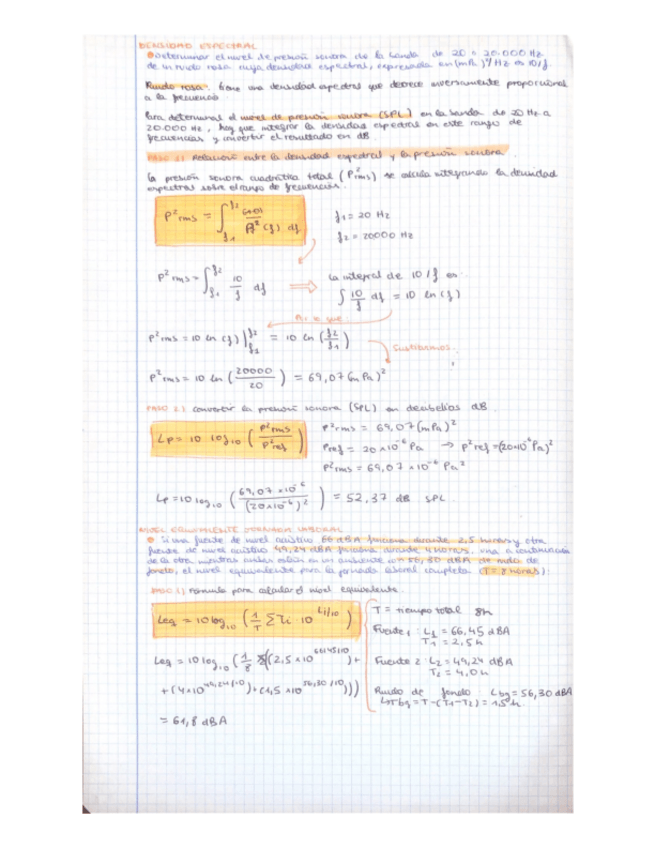 DENSIDAD ESPECTRAL
Determinar el nivel de presión sonora de la banda de 20 a 20.000 Hz
de un ruido rosa cuya densidad espectral, expresada en (mPa)²/Hz es 10/f.
Ruido rosa: tiene una densidad espectral que decrece inversamente proporcional
a la frecuencia.
Para determinar el nivel de presión sonora (SPL) en la banda de 20 Hz a
20.000 Hz, hay que integrar la densidad espectral en este rango de
frecuencias y convertir el resultado en dB.
PASO 1) Relación entre la densidad espectral y la presión sonora.
la presión sonora cuadrática total (P²rms) se calcula integrando la densidad
espectral sobre el rango de frecuencias.
P²rms = ∫f1^f2 (f) df
f1 = 20 Hz
f2 = 20000 Hz
P²rms = ∫f1^f2 10/f df ⇒ la integral de 10/f es:
∫ 10/f df = 10 ln (f)
Así que:
P²rms = 10 ln (f) |f1^f2 = 10 ln (f2/f1)
Sustituimos.
P²rms = 10 ln (20000/20) = 69,07 (mPa)²
PASO 2) Convertir la presión sonora (SPL) en decibelios dB.
Lp = 10 log10 (P²rms/P²ref)
P²rms = 69,07 (mPa)²
Pref = 20x10⁻⁶ Pa → P²ref = (20x10⁻⁶ Pa)²
P²rms = 69,07 x10⁻⁶ Pa²
Lp = 10 log10 (69,07 x10⁻⁶/(20x10⁻⁶)²) = 52,37 dB SPL.
NIVEL EQUIVALENTE JORNADA LABORAL
Si una fuente de nivel acústico 66 dBA funciona durante 2,5 horas y otra
fuente de nivel acústico 49,24 dBA funciona durante 4 horas, una a continuación
de la otra, mientras ambas están en un ambiente con 56,30 dBA de ruido de
fondo, el nivel equivalente para la jornada laboral completa (T = 8 horas):
PASO 1) Fórmula para calcular el nivel equivalente.
Leq = 10 log10 (1/T ΣTi · 10^Li/10)
T = tiempo total 8h
Fuente 1: L1 = 66,45 dBA
T1 = 2,5 h
Leq = 10 log10 (1/8 ((2,5 x10^66,45/10) +
+ (4x10^49,24/10) + (1,5 x10^56,30/10)))
Fuente 2: L2 = 49,24 dBA
T2 = 4,0 h
Ruido de fondo Lbg = 56,30 dBA
Tbg = T-(T1-T2) = 1,5 h.
= 61,8 dBA